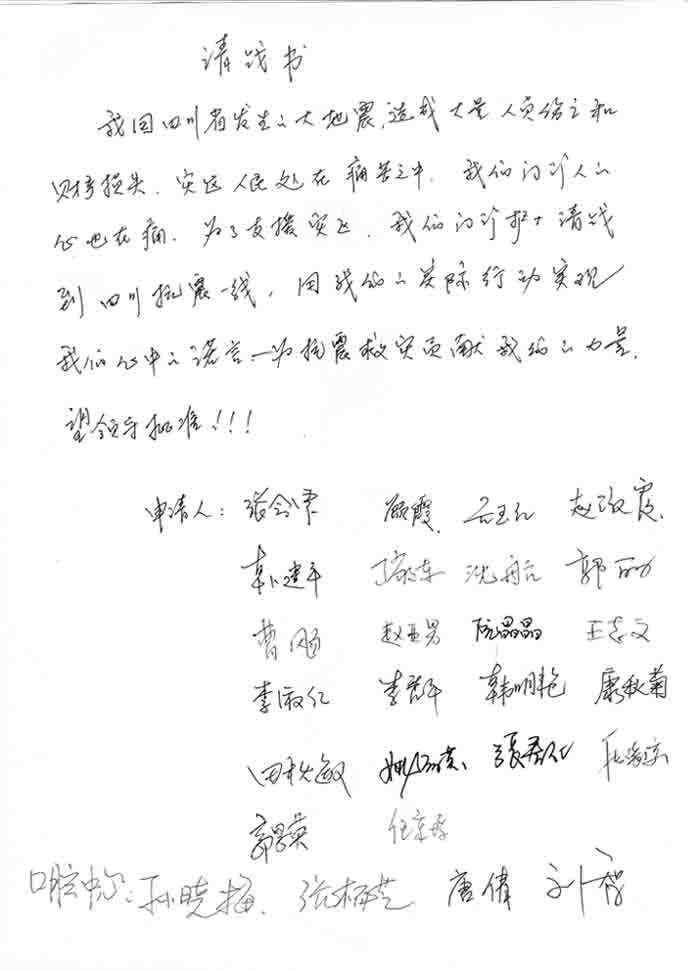 请战书
我国四川省发生的大地震,造成大量人员伤亡和
财产损失.灾区人民处在痛苦之中.我们门诊人的
心也在痛.为了支援灾区.我们门诊护士请战
到四川抗震一线,用我们的实际行动实现
我们心中的诺言—为抗震救灾贡献我们的力量.
望领导批准!!!
申请人: 顾霞 石玉红 赵改霞
沈舟 郭
曹 赵亚男 阮晶晶 王志文
李淑红 韩明艳 康秋菊
田秋敏 張
郭
口腔 孙晓梅. 张 唐倩